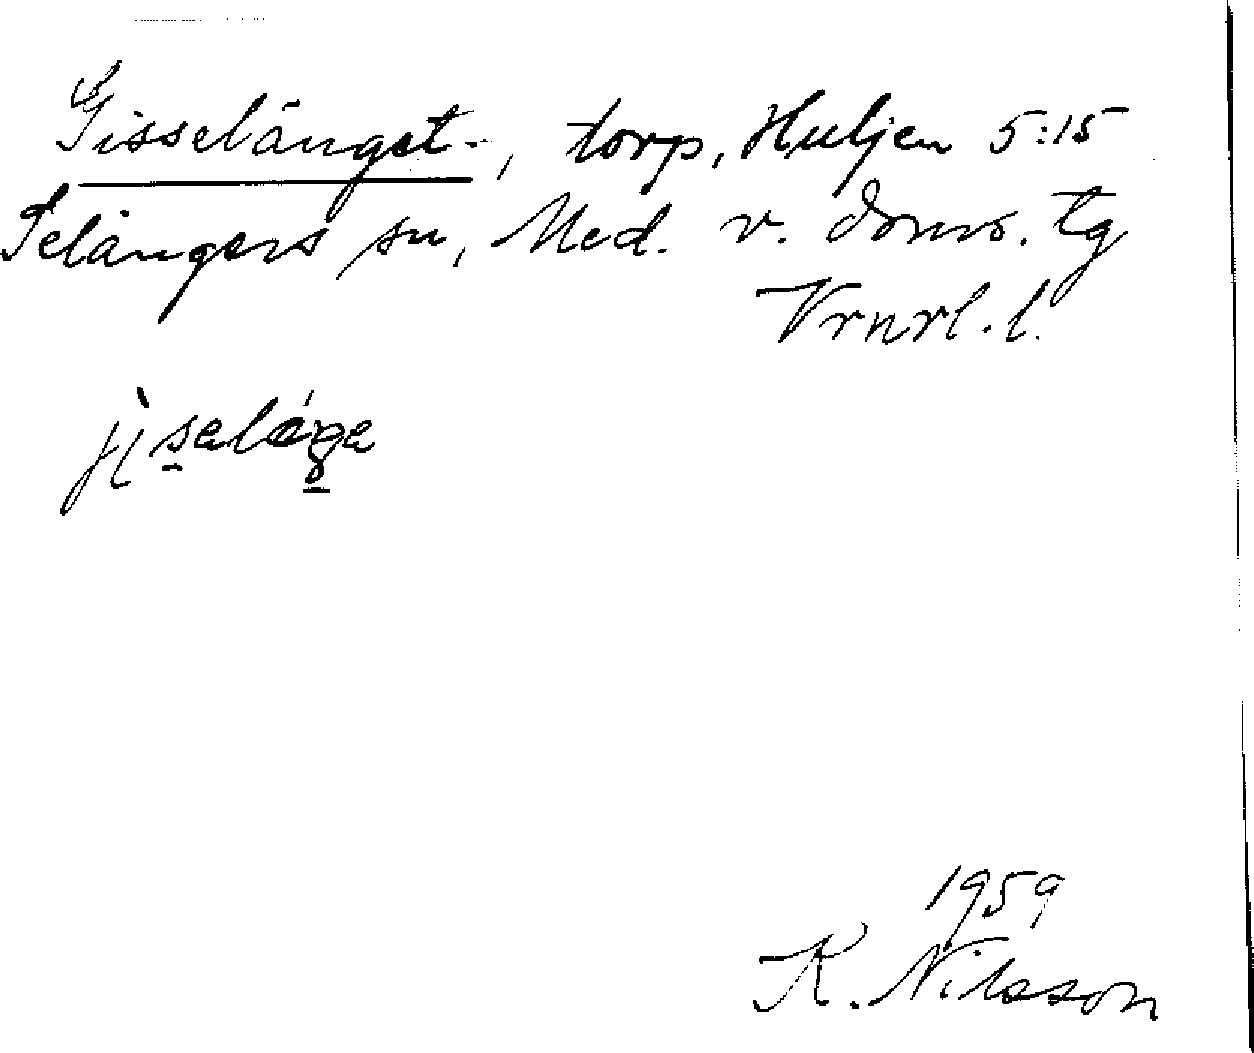 Gisselänget, torp, Huljen 5:15
Selångers sn, Med. v. doms. tg
Vrnrl. l.
1959
K. Nilsson